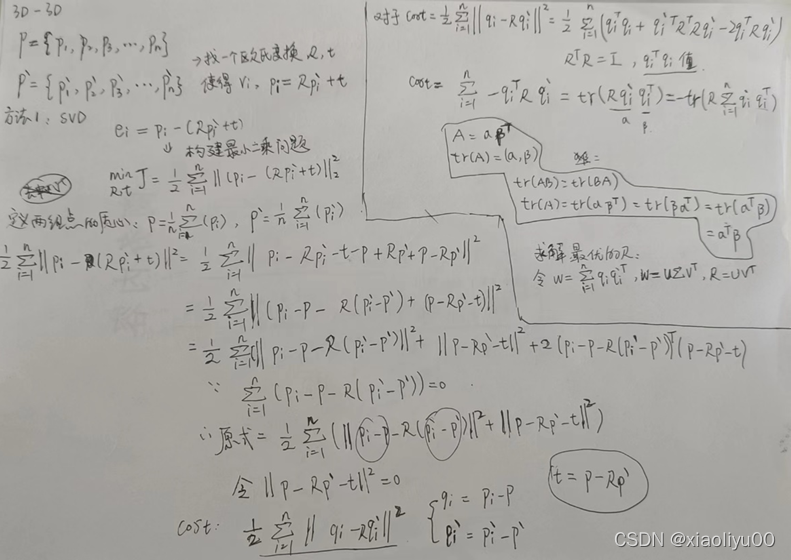 3D-3D
P = {p₁, p₂, p₃, ..., pₙ}
P' = {p₁', p₂', p₃', ..., pₙ'}
→找一个欧氏变换 R, t
使得 ∀i, pᵢ = Rpᵢ' + t
方法1: SVD
eᵢ = pᵢ - (Rpᵢ' + t)
↓ 构建最小二乘问题
min R,t J = 1/2 Σᵢ₌₁ⁿ ||(pᵢ - (Rpᵢ' + t)||₂²
定义两组点的质心: p = 1/n Σᵢ₌₁ⁿ (pᵢ), p' = 1/n Σᵢ₌₁ⁿ (pᵢ')
1/2 Σᵢ₌₁ⁿ ||pᵢ - (Rpᵢ' + t)||² = 1/2 Σᵢ₌₁ⁿ || pᵢ - Rpᵢ' - t - p + Rp' + p - Rp' ||²
= 1/2 Σᵢ₌₁ⁿ ||(pᵢ - p - R(pᵢ' - p') + (p - Rp' - t)||²
= 1/2 Σᵢ₌₁ⁿ (||pᵢ - p - R(pᵢ' - p')||² + ||p - Rp' - t||² + 2(pᵢ - p - R(pᵢ' - p')ᵀ(p - Rp' - t)
∵ Σᵢ₌₁ⁿ (pᵢ - p - R(pᵢ' - p')) = 0
∴ 原式 = 1/2 Σᵢ₌₁ⁿ (||pᵢ - p - R(pᵢ' - p')||² + ||p - Rp' - t||²)
令 ||p - Rp' - t||² = 0
t = p - Rp'
cost: 1/2 Σᵢ₌₁ⁿ || qᵢ - Rqᵢ' ||²
{ qᵢ = pᵢ - p
qᵢ' = pᵢ' - p'
对于 Cost = 1/2 Σᵢ₌₁ⁿ ||qᵢ - Rqᵢ'||² = 1/2 Σᵢ₌₁ⁿ (qᵢᵀqᵢ + qᵢ'ᵀRᵀRqᵢ' - 2qᵢᵀRqᵢ')
RᵀR = I, qᵢᵀqᵢ 值
Cost = Σᵢ₌₁ⁿ -qᵢᵀR qᵢ' = tr(Rqᵢ' qᵢᵀ) = -tr(R Σᵢ₌₁ⁿ qᵢ' qᵢᵀ)
a β
A = aβᵀ
tr(A) = (a, β)
tr(AB) = tr(BA)
tr(A) = tr(aβᵀ) = tr(βaᵀ) = tr(aᵀβ)
= aᵀβ
求解最优的R:
令 W = Σᵢ₌₁ⁿ qᵢqᵢ'ᵀ, W = UΣVᵀ, R = UVᵀ
CSDN @xiaoliyu00